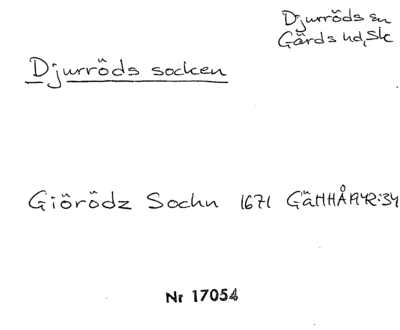 Djurröds sn
Gärds hd, Sk
Djurröds socken
Giörödz Sochn 1671 GäHHÅ
Nr 17054